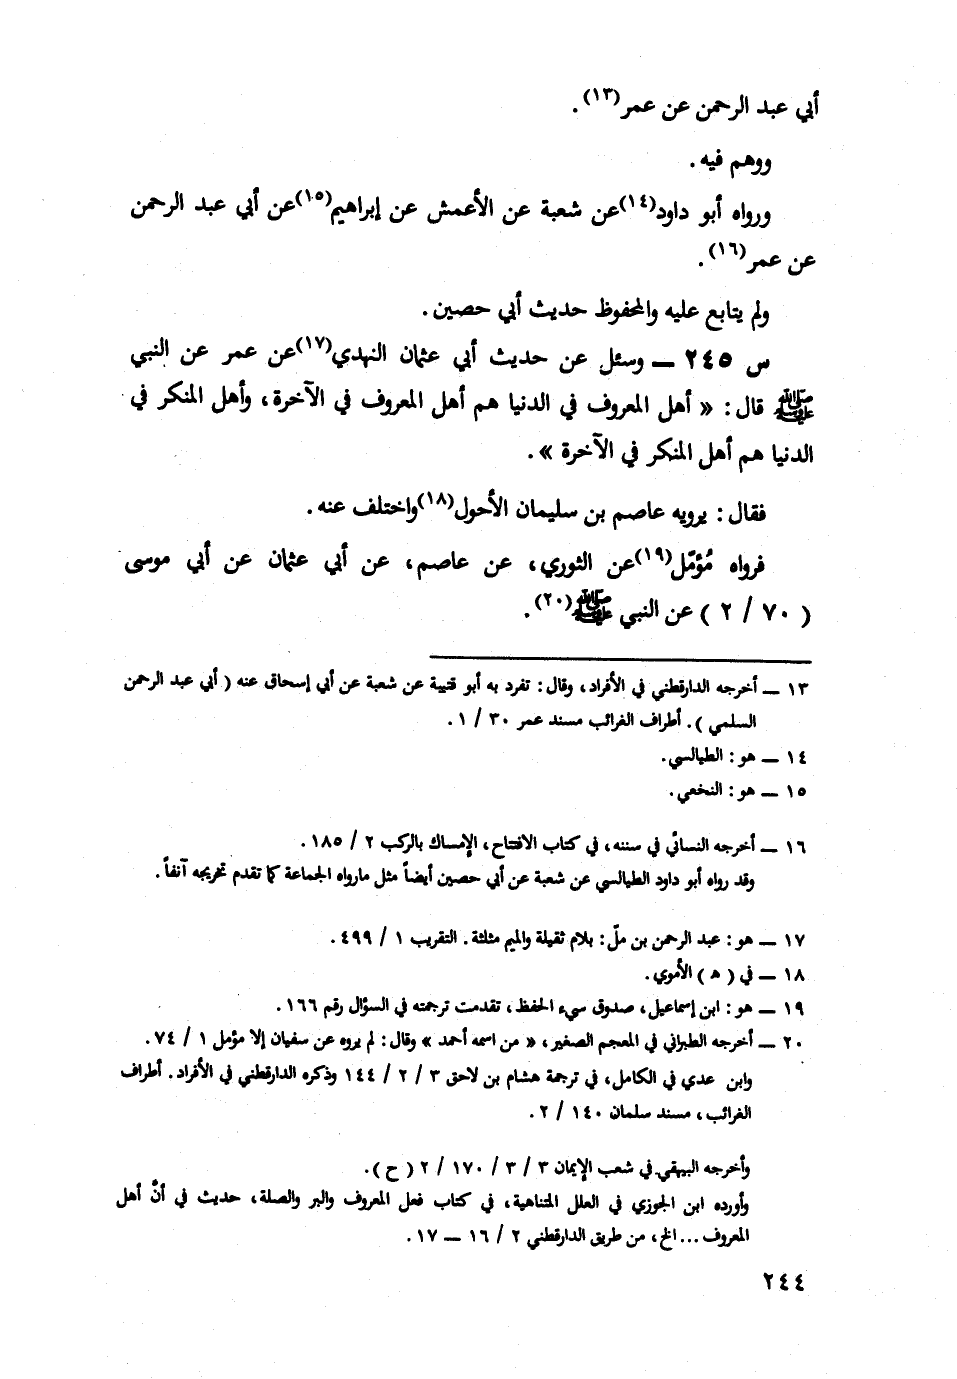 أبي عبد الرحمن عن عمر(١٣).
ووهم فيه.
ورواه أبو داود(١٤)عن شعبة عن الأعمش عن إبراهيم(١٥)عن أبي عبد الرحمن
عن عمر(١٦).
ولم يتابع عليه والمحفوظ حديث أبي حصين.
س ٢٤٥ ــ وسئل عن حديث أبي عثمان النهدي(١٧)عن عمر عن النبي
ﷺ قال: « أهل المعروف في الدنيا هم أهل المعروف في الآخرة، وأهل المنكر في
الدنيا هم أهل المنكر في الآخرة ».
فقال: يرويه عاصم بن سليمان الأحول(١٨)واختلف عنه.
فرواه مُؤمّل(١٩)عن الثوري، عن عاصم، عن أبي عثمان عن أبي موسى
( ٧٠ / ٢ ) عن النبي ﷺ(٢٠).
١٣ ــ أخرجه الدارقطني في الأفراد، وقال: تفرد به أبو قتيبة عن شعبة عن أبي إسحاق عنه ( أبي عبد الرحمن
السلمي ). أطراف الغرائب مسند عمر ٣٠ / ١.
١٤ ــ هو: الطيالسي.
١٥ ــ هو: النخعي.
١٦ ــ أخرجه النسائي في سننه، في كتاب الافتتاح، الإمساك بالركب ٢ / ١٨٥.
وقد رواه أبو داود الطيالسي عن شعبة عن أبي حصين أيضاً مثل مارواه الجماعة كما تقدم تخريجه آنفاً.
١٧ ــ هو: عبد الرحمن بن ملّ: بلام ثقيلة والميم مثلثة. التقريب ١ / ٤٩٩.
١٨ ــ في ( ه ) الأموي.
١٩ ــ هو: ابن إسماعيل، صدوق سيء الحفظ، تقدمت ترجمته في السؤال رقم ١٦٦.
٢٠ ــ أخرجه الطبراني في المعجم الصغير، « من اسمه أحمد » وقال: لم يروه عن سفيان إلا مؤمل ١ / ٧٤.
وابن عدي في الكامل، في ترجمة هشام بن لاحق ٣ / ٢ / ١٤٤ وذكره الدارقطني في الأفراد. أطراف
الغرائب، مسند سلمان ١٤٠ / ٢.
وأخرجه البيهقي في شعب الإيمان ٣ / ٣ / ١٧٠ / ٢ ( ح ).
وأورده ابن الجوزي في العلل المتناهية، في كتاب فعل المعروف والبر والصلة، حديث في أنّ أهل
المعروف ... الخ، من طريق الدارقطني ٢ / ١٦ ــ ١٧.
٢٤٤